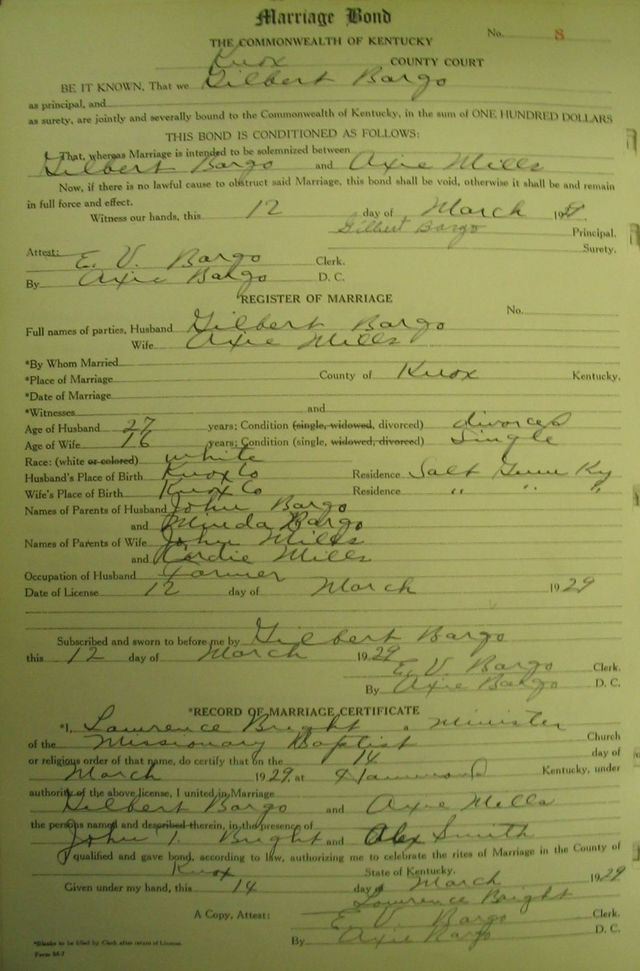 Marriage Bond
No. 8
THE COMMONWEALTH OF KENTUCKY
Knox COUNTY COURT
BE IT KNOWN, That we Gilbert Bargo
as principal, and
as surety, are jointly and severally bound to the Commonwealth of Kentucky, in the sum of ONE HUNDRED DOLLARS
THIS BOND IS CONDITIONED AS FOLLOWS:
That, whereas Marriage is intended to be solemnized between
Gilbert Bargo and Axie Mills
Now, if there is no lawful cause to obstruct said Marriage, this bond shall be void, otherwise it shall be and remain
in full force and effect.
Witness our hands, this 12 day of March 19
Gilbert Bargo Principal.
Surety.
Attest:
E. V. Bargo Clerk.
By Axie Bargo D. C.
REGISTER OF MARRIAGE
No.
Full names of parties, Husband Gilbert Bargo
Wife Axie Mills
*By Whom Married
*Place of Marriage County of Knox Kentucky,
*Date of Marriage
*Witnesses and
Age of Husband 27 years; Condition (single, widowed, divorced) divorced
Age of Wife 16 years; Condition (single, widowed, divorced) Single
Race: (white or colored) white
Husband's Place of Birth Knox Co Residence Salt Gum Ky
Wife's Place of Birth Knox Co Residence " " "
Names of Parents of Husband John Bargo
and Minda Bargo
Names of Parents of Wife John Mills
and Cordie Mills
Occupation of Husband Farmer
Date of License 12 day of March 1929
Subscribed and sworn to before me by Gilbert Bargo
this 12 day of March 1929
E. V. Bargo Clerk.
By Axie Bargo D. C.
*RECORD OF MARRIAGE CERTIFICATE
*I, Lawrence Bright, a Minister
of the Missionary Baptist Church
or religious order of that name, do certify that on the 14 day of
March 1929, at Hammond Kentucky, under
authority of the above license, I united in Marriage
Gilbert Bargo and Axie Mills
the persons named and described therein, in the presence of
John T. Bright and Alex Smith
I qualified and gave bond, according to law, authorizing me to celebrate the rites of Marriage in the County of
Knox State of Kentucky.
Given under my hand, this 14 day of March 1929
Lawrence Bright
A Copy, Attest: E. V. Bargo Clerk.
By Axie Bargo D. C.
*Blanks to be filled by Clerk after return of License.
Form 86-7